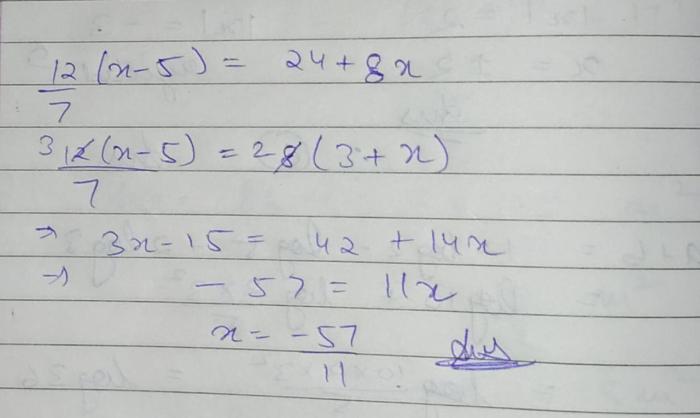 12/7 (x-5) = 24 + 8x
3 12(x-5)/7 = 2 8 (3 + x)
→ 3x - 15 = 42 + 14x
→ - 57 = 11x
x = -57/11 Ans